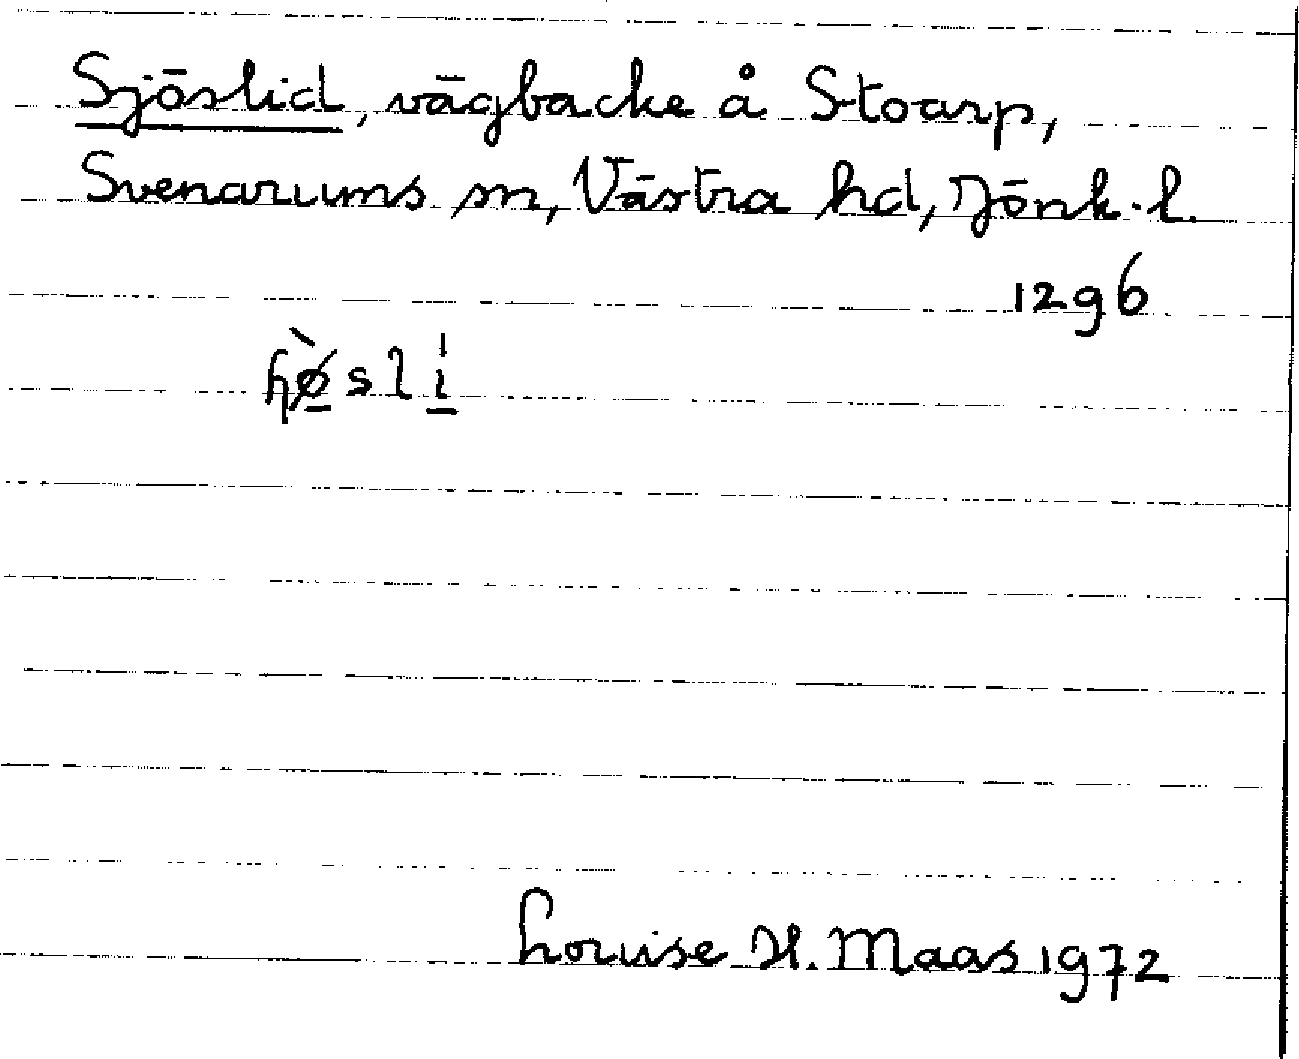 Sjöslid, vägbacke å Stoarp,
Svenarums sn, Västra hd, Jönk. l.
1296
ɧø̀sli
Louise H. Maas 1972